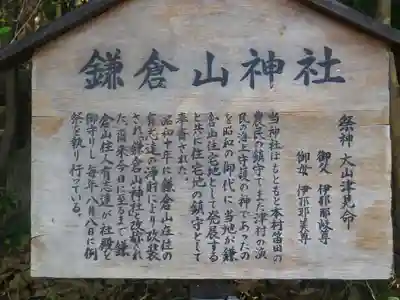 鎌倉山神社
祭神 大山津見命
御父 伊那那岐尊
御母 伊那那美尊
当神社はもともと本村笛田の
農民の鎮守でまた津村の漁
民の海上守護の神であったの
を昭和の御代に当地が鎌
倉山住宅地として発展する
と共に住宅地の鎮守として
奉斎された。
昭和十年に鎌倉山在住の
有志達の浄財により改装
され、鎌倉山神社と改称され
た。爾来今日に至るまで鎌
倉山住人有志達が社殿を
御守りし毎年八月八日に例
祭を執り行っている。